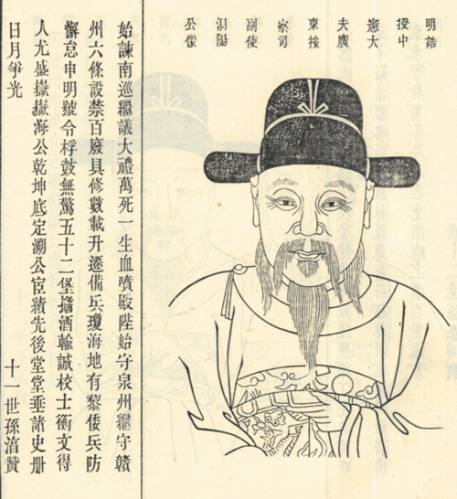 明誥
授中
憲大
夫廣
東按
察司
副使
泗陽
公像
始諫南巡繼議大禮萬死一生血噴殿陛始守泉州繼守贛
州六條設禁百廢具修數載升遷備兵瓊海地有黎倭兵防
懈怠申明號令桴鼓無驚五十二堡擔酒輸誠校士衡文得
人尤盛嶽嶽海公乾坤底定溯公宦績先後堂堂垂諸史册
日月爭光
十一世孫湻贊